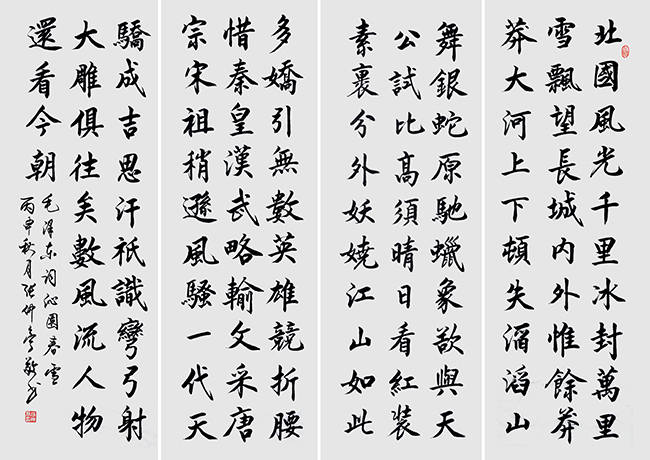 北國風光千里冰封萬里
雪飄望長城內外惟餘莽
莽大河上下頓失滔滔山
舞銀蛇原馳蠟象欲與天
公試比高須晴日看紅裝
素裹分外妖嬈江山如此
多嬌引無數英雄競折腰
惜秦皇漢武略輸文采唐
宗宋祖稍遜風騷一代天
驕成吉思汗祇識彎弓射
大雕俱往矣數風流人物
還看今朝
毛澤東詞沁園春雪
丙申秋月張仲亭敬书